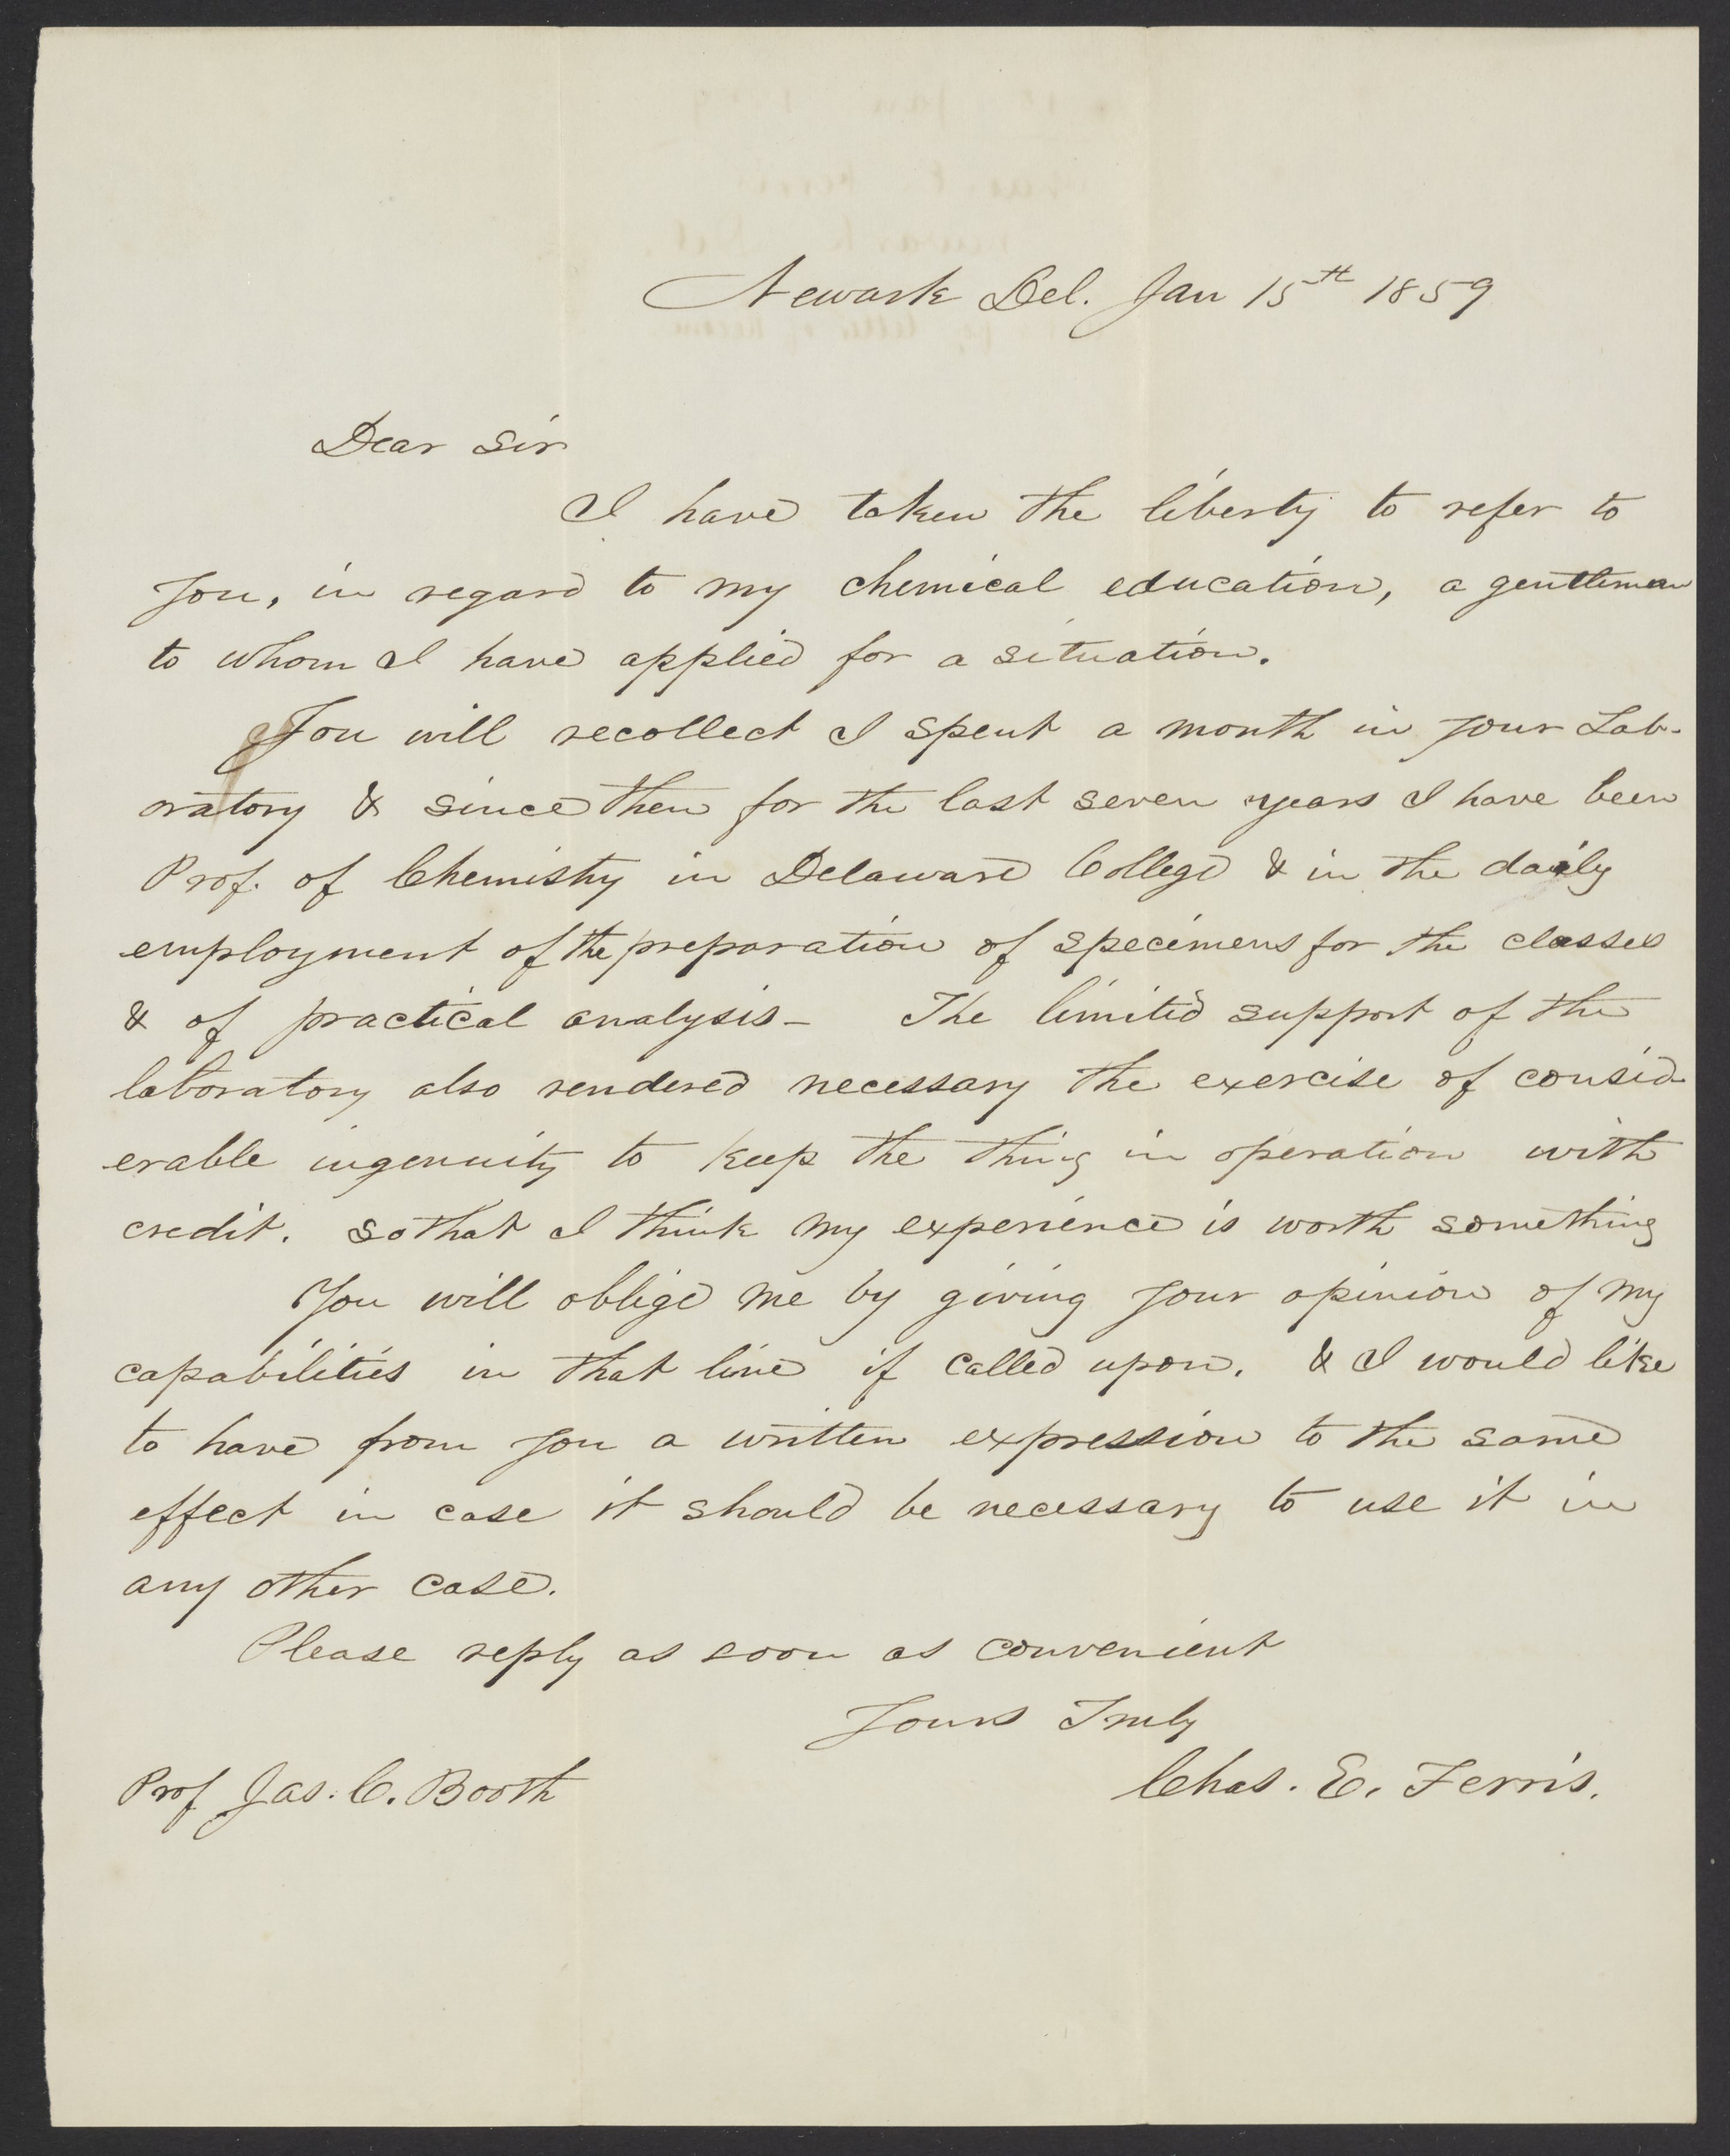 Newark Del. Jan 15th 1859
Dear Sir
I have taken the liberty to refer to
you, in regard to my chemical education, a gentleman
to whom I have applied for a situation.
You will recollect I spent a month in your Lab-
oratory & since then for the last seven years I have been
Prof. of Chemistry in Delaware College & in the daily
employment of the preparation of specimens for the classes
& of practical analysis— The limited support of the
laboratory also rendered necessary the exercise of consid-
erable ingenuity to keep the thing in operation with
credit. so that I think my experience is worth something
You will oblige me by giving your opinion of my
capabilities in that line if called upon. & I would like
to have from you a written expression to the same
effect in case it should be necessary to use it in
any other case.
Please reply as soon as convenient
Yours Truly
Chas. E. Ferris.
Prof Jas. C. Booth